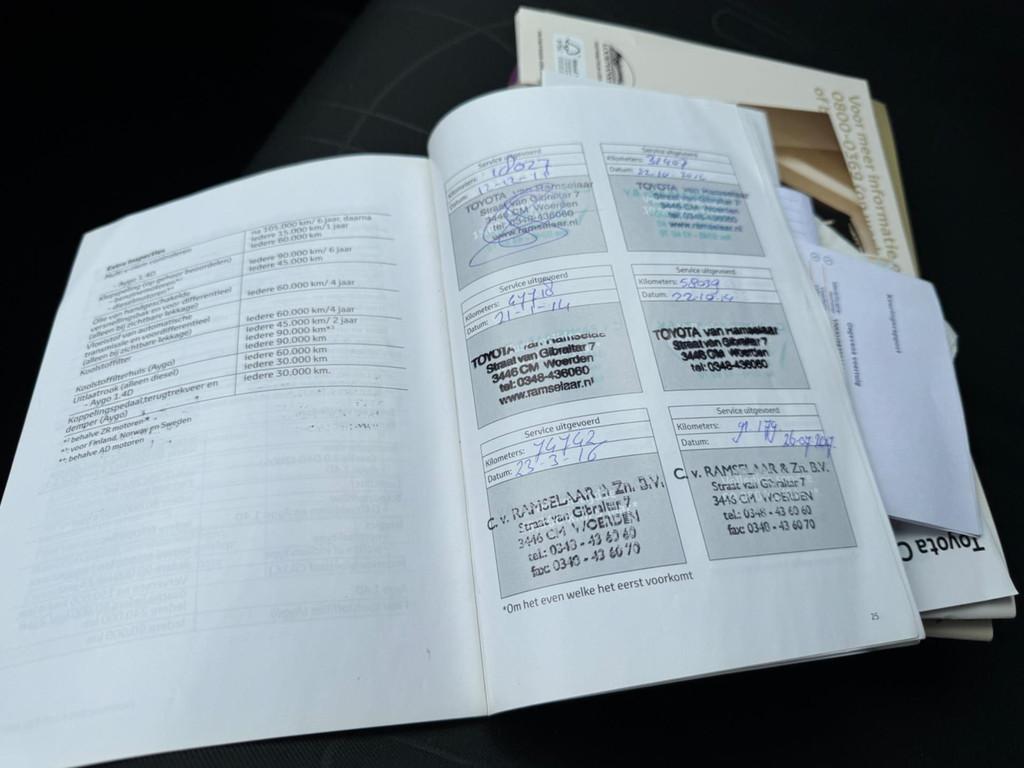 Extra inspecties
- Aygo 1.4D
na 105.000 km/ 6 jaar, daarna
iedere 15.000 km/1 jaar
iedere 60.000 km
Iedere 90.000 km/ 6 jaar
iedere 45.000 km
Olie van handgeschakelde
versnellingsbak en voor differentieel
(alleen bij zichtbare lekkage)
Iedere 60.000 km/ 4 jaar
Vloeistof van automatische
transmissie en voor differentieel
(alleen bij zichtbare lekkage)
iedere 60.000 km/4 jaar
Koolstoffilter
iedere 45.000 km/ 2 jaar
iedere 90.000 km*³
iedere 90.000 km
Koolstoffilterhuis (Aygo)
iedere 60.000 km
Uitlaatrook (alleen diesel)
- Aygo 1.4D
iedere 30.000 km
Koppelingspedaal,terugtrekveer en
demper (Aygo)
iedere 30.000 km.
behalve ZR motoren
voor Finland, Norway en Sweden
behalve AD motoren
Service uitgevoerd
Kilometers: 18027
Datum:
TOYOTA van Ramselaar
Straat van Gibraltar 7
3446 CM Woerden
tel: 0348-436060
www.ramselaar.nl
Service uitgevoerd
Kilometers: 38407
Datum:
TOYOTA van Ramselaar
Straat van Gibraltar 7
3446 CM Woerden
tel: 0348-436060
www.ramselaar.nl
Service uitgevoerd
Kilometers: 47718
Datum: 21-1-14
TOYOTA van Ramselaar
Straat van Gibraltar 7
3446 CM Woerden
tel: 0348-436060
www.ramselaar.nl
Service uitgevoerd
Kilometers: 58039
Datum:
TOYOTA van Ramselaar
Straat van Gibraltar 7
3446 CM Woerden
tel: 0348-436060
Service uitgevoerd
Kilometers: 74742
Datum: 23-3-16
C. v. RAMSELAAR & Zn. B.V.
Straat van Gibraltar 7
3446 CM WOERDEN
tel.: 0348 - 43 60 60
fax: 0348 - 43 60 70
Service uitgevoerd
Kilometers: 91 179
Datum: 26-07-2017
C. v. RAMSELAAR & Zn. B.V.
Straat van Gibraltar 7
3446 CM WOERDEN
tel.: 0348 - 43 60 60
fax: 0348 - 43 60 70
*Om het even welke het eerst voorkomt
25
Voor meer informatie
0800-0369
Toyota